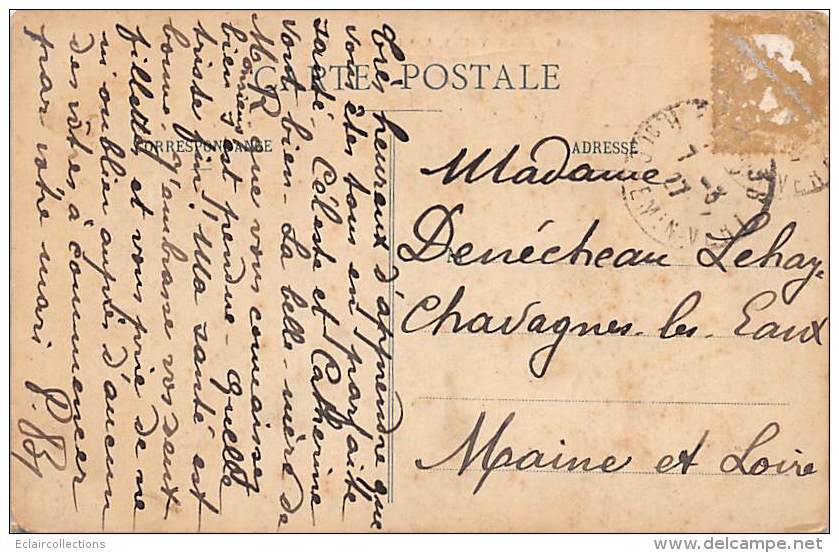 CARTE POSTALE
CORRESPONDANCE
ADRESSE
Très heureux d'apprendre que
vous êtes tous en parfaite
santé. Céleste et Catherine
vont bien - La belle-mère de
M. R que vous connaissez
bien s'est pendue - Quelle
triste fin! Ma santé est
bonne. J'embrasse vos deux
fillettes et vous prie de ne
m'oublier auprès d'aucun
des vôtres à commencer
par votre mari
Madame
Denécheau Lehay
Chavagnes-les-Eaux
Maine et Loire
7 - 3
27
Eclaircollections
DELCAMPE.NET